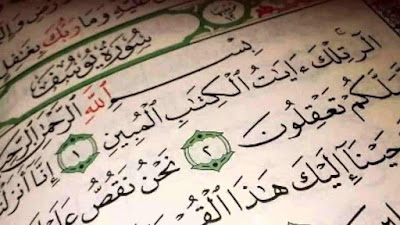 عَلَيْهِ وَمَا رَبُّكَ بِغَٰفِلٍ
سُورَةُ يُوسُفَ
بِسْمِ اللَّهِ الرَّحْمَٰنِ الرَّحِيمِ
الٓر تِلْكَ ءَايَٰتُ الْكِتَٰبِ الْمُبِينِ ١ إِنَّا أَنزَلْ
لَّعَلَّكُمْ تَعْقِلُونَ ٢ نَحْنُ نَقُصُّ عَلَيْ
حَيْنَا إِلَيْكَ هَٰذَا الْقُرْ